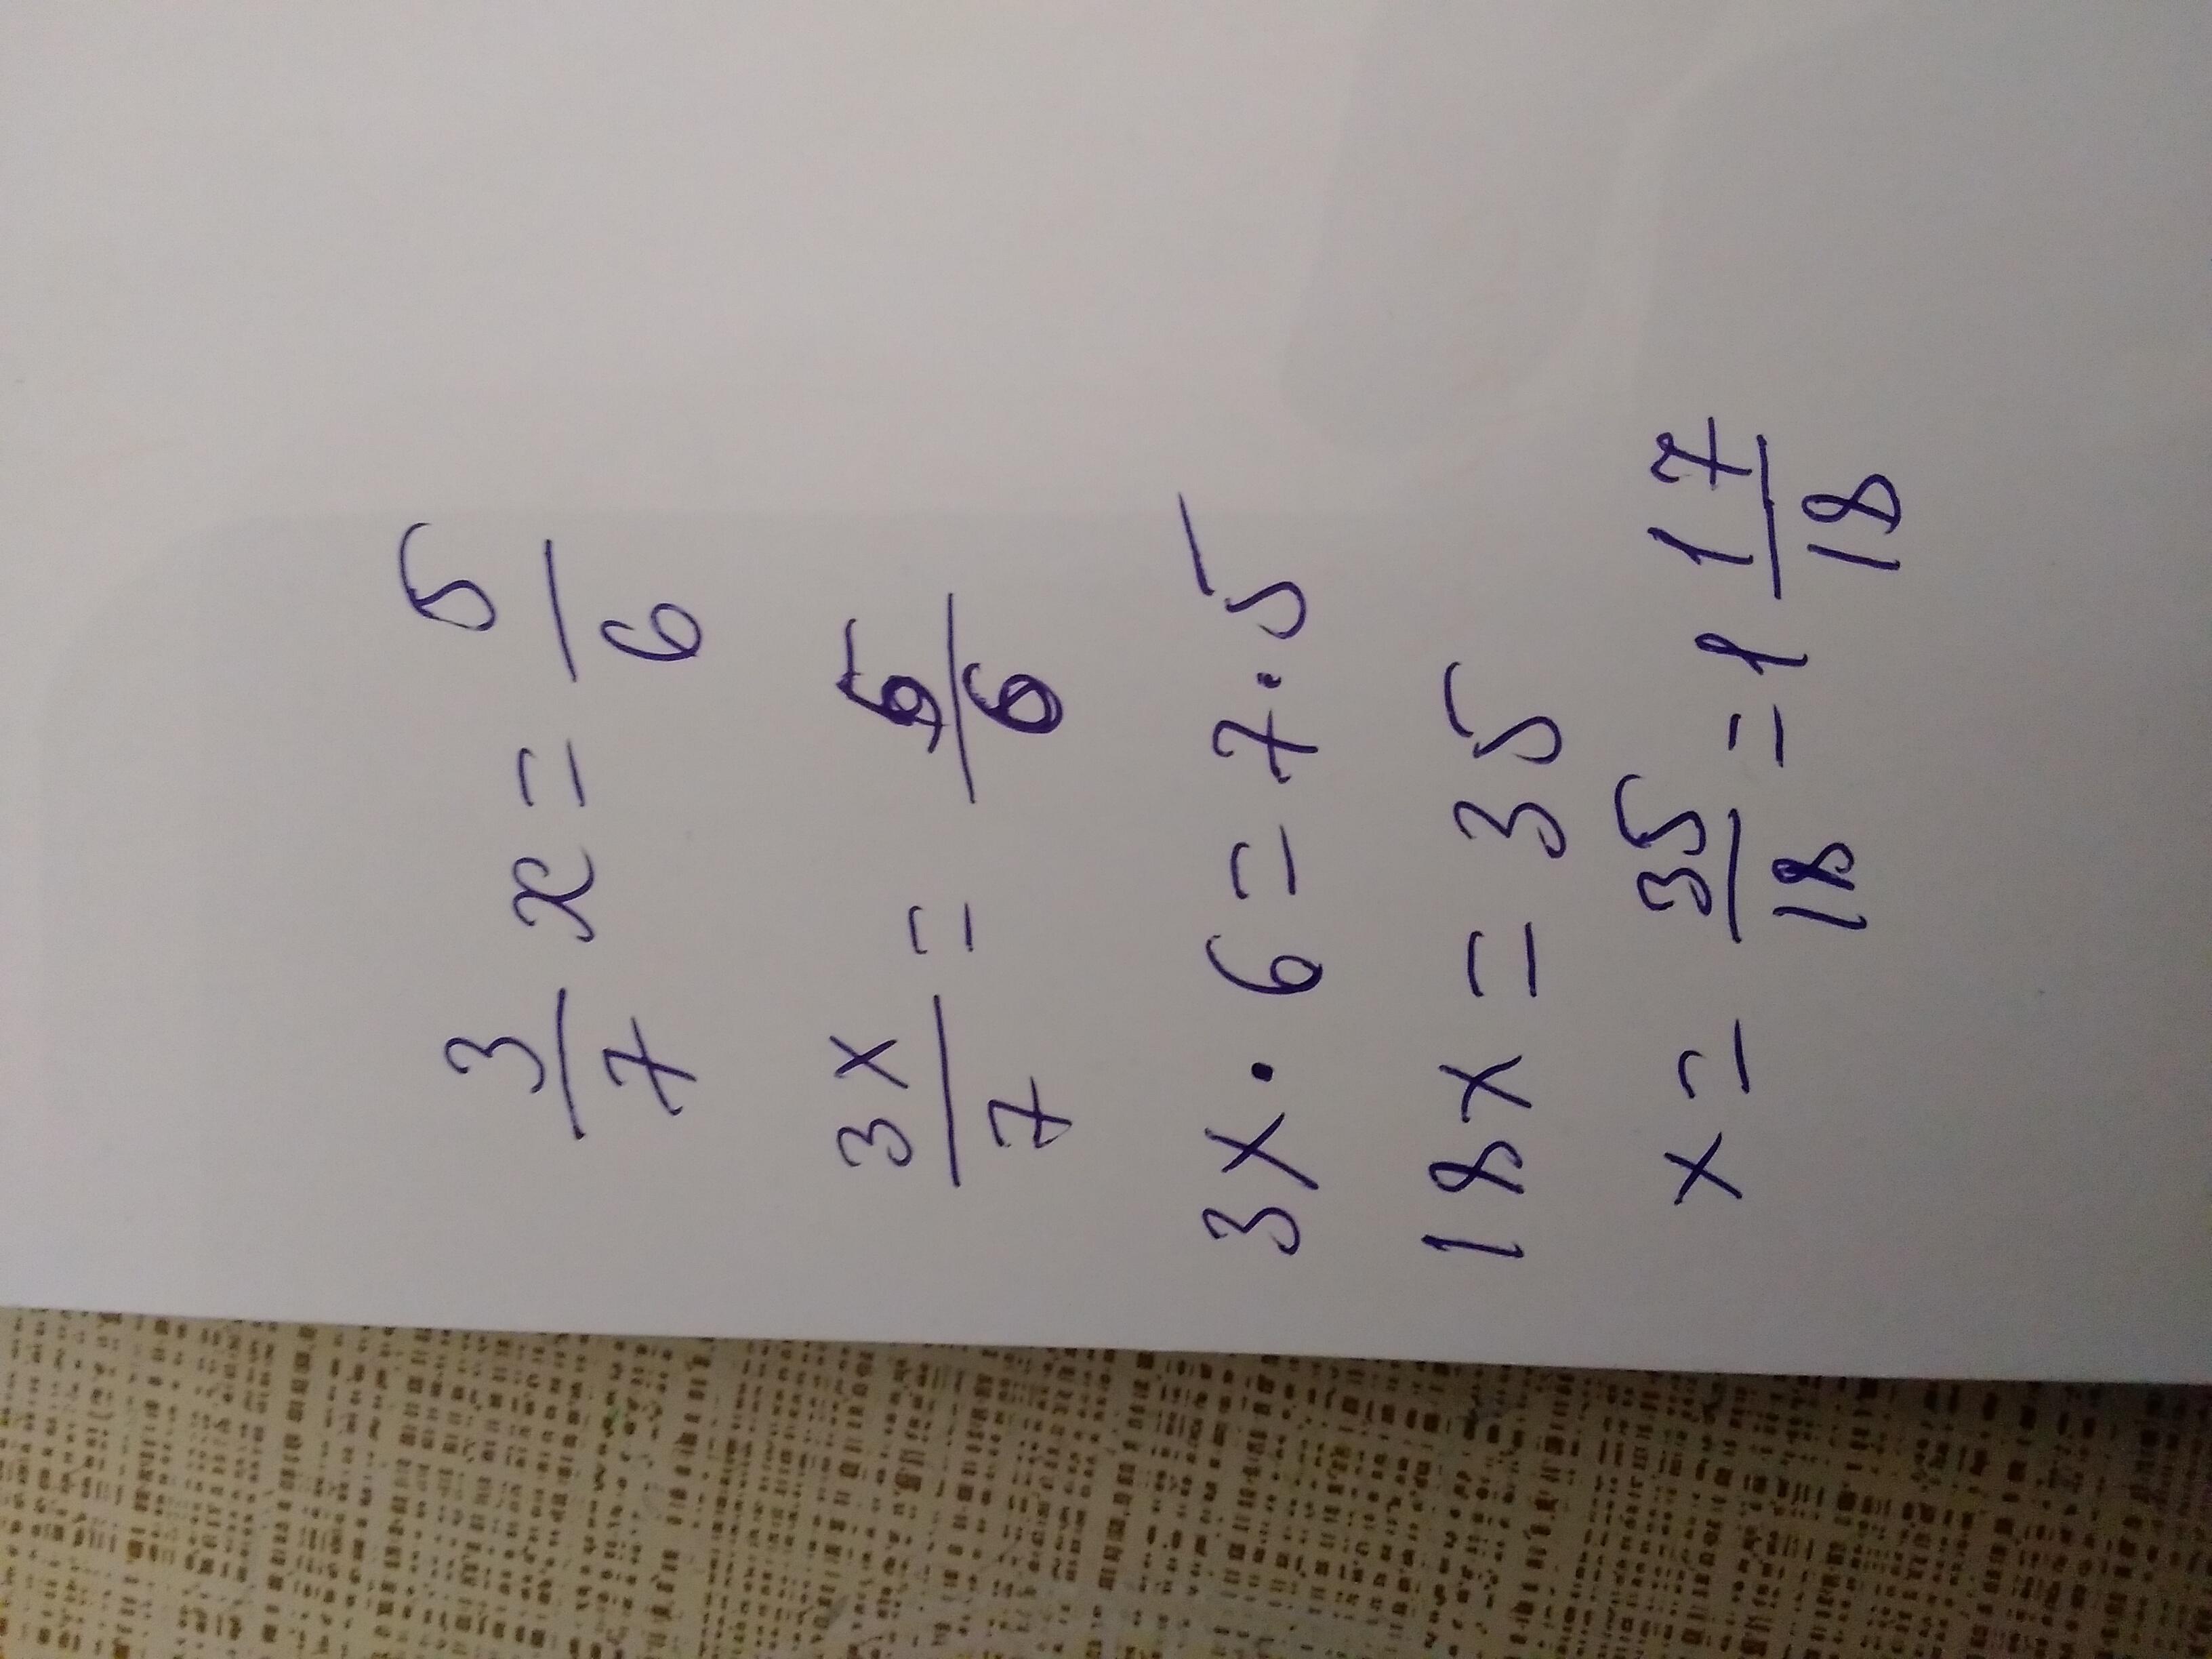 3/7 x = 5/6
3x/7 = 5/6
3x · 6 = 7 · 5
18x = 35
x = 35/18 = 1 17/18